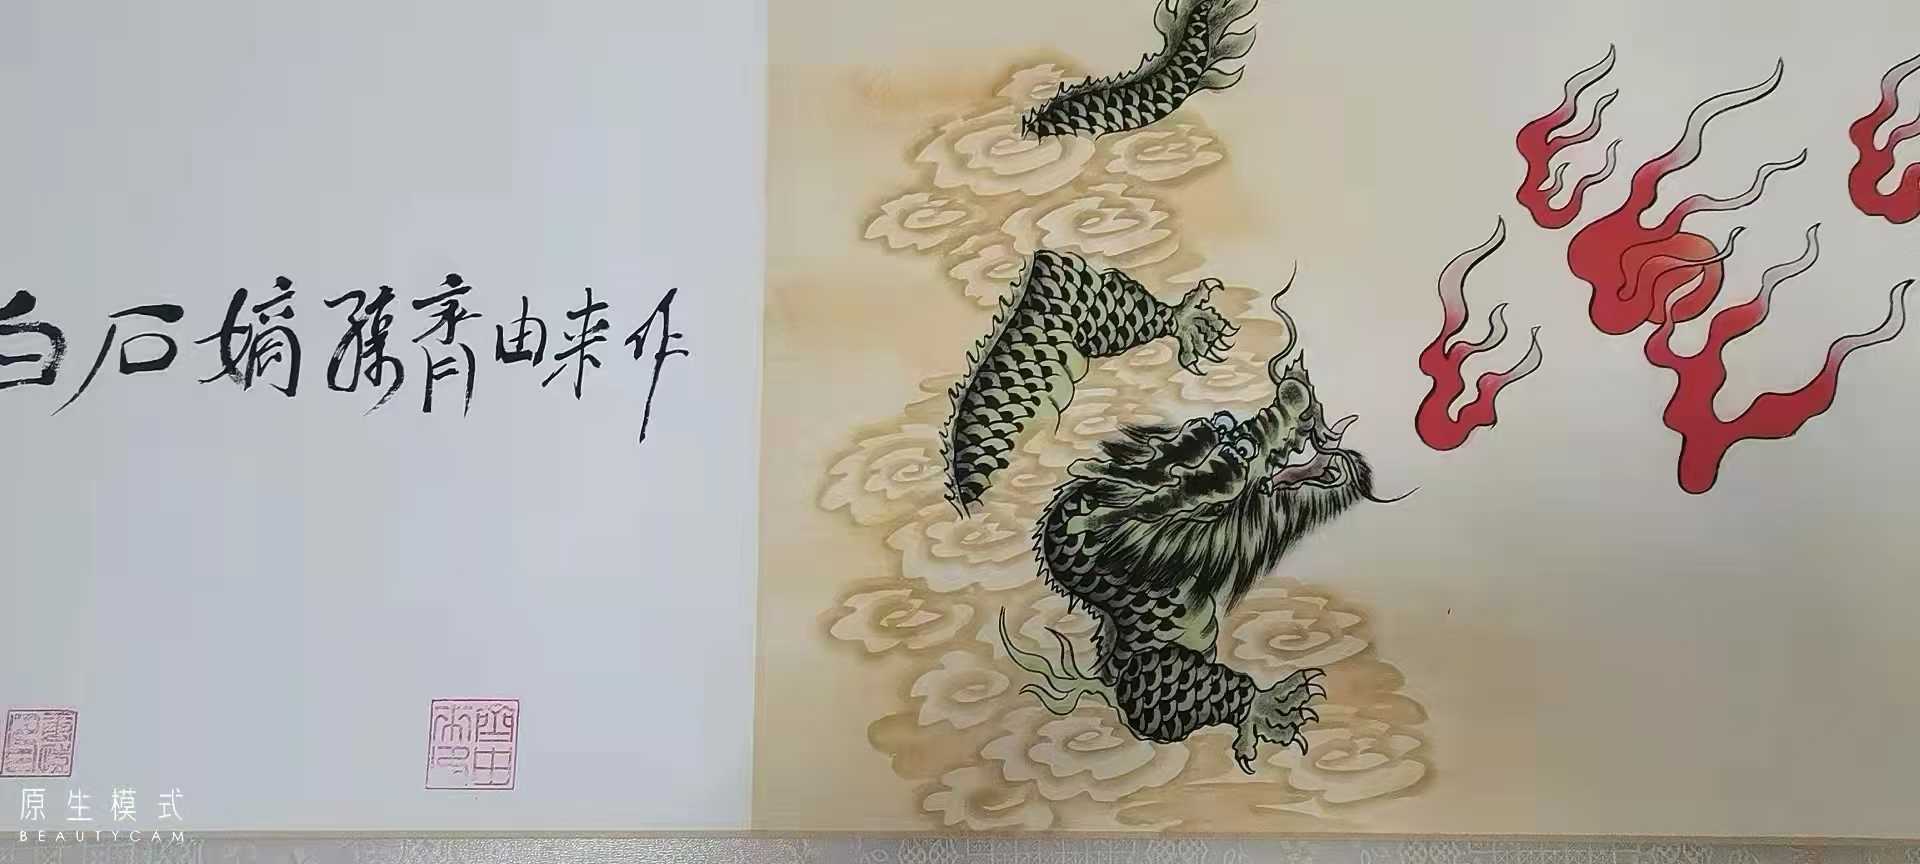 白石嫡孙齊由来作
原生模式
BEAUTYCAM